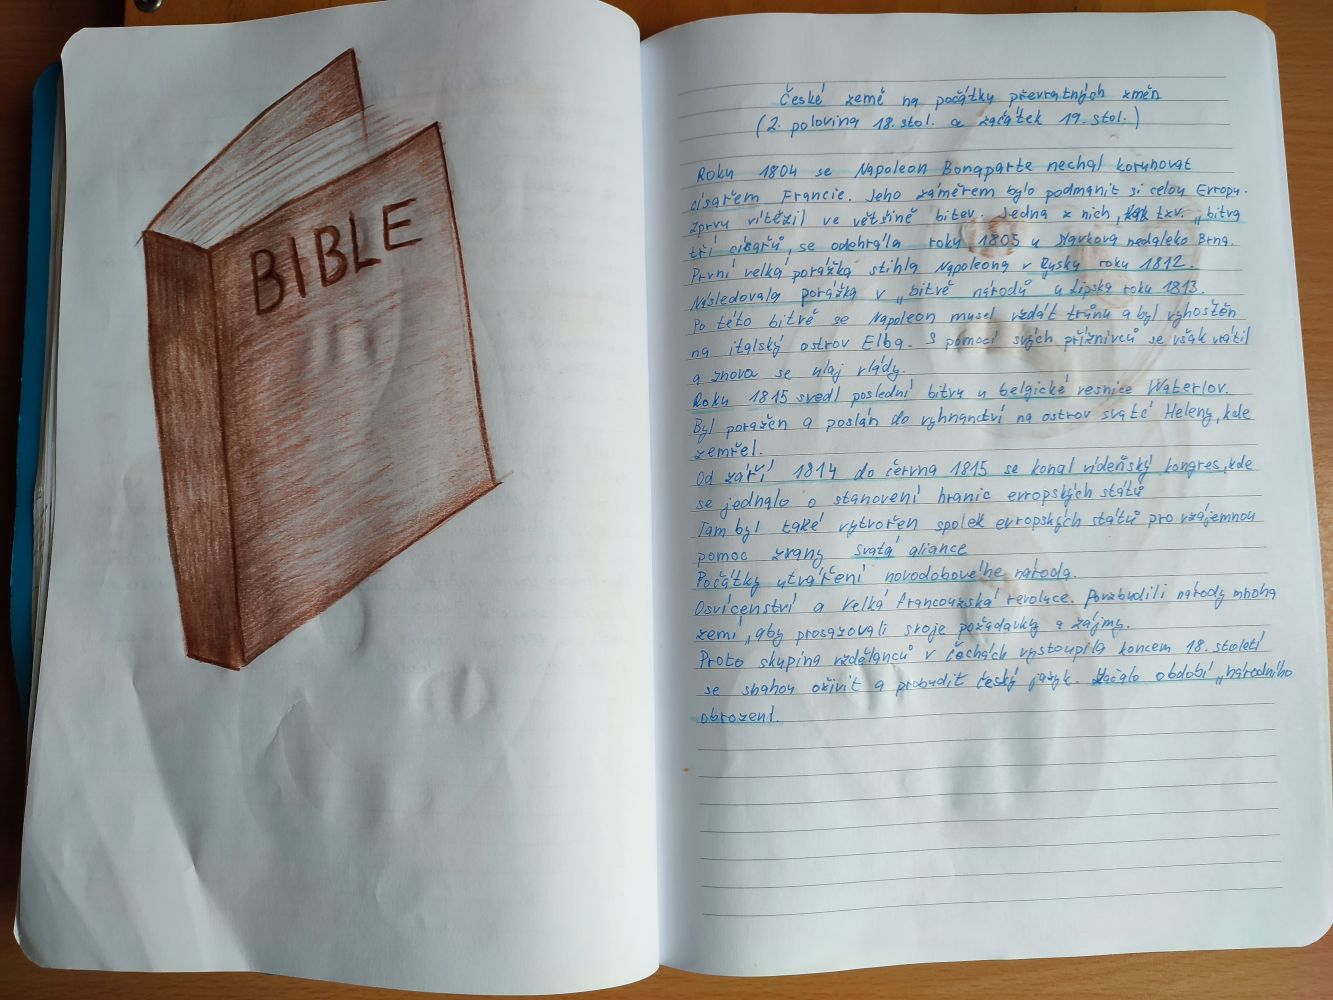 BIBLE
České země na počátky převratných změn
(2. polovina 18. stol. a začátek 19. stol.)
Roku 1804 se Napoleon Bonaparte nechal korunovat
císařem Francie. Jeho záměrem bylo podmanit si celou Evropu.
Zprvu vítězil ve většině bitev. Jedna z nich, tzv. „bitva
tří císařů, se odehrála roku 1805 u Slavkova nedaleko Brna.
První velká porážka stihla Napoleona v Rusku roku 1812.
Následovala porážka v „bitvě národů u Lipska roku 1813.
Po této bitvě se Napoleon musel vzdát trůnu a byl vyhoštěn
na italský ostrov Elba. S pomocí svých příznivců se však vrátil
a znova se ujal vlády.
Roku 1815 svedl poslední bitvu u belgické vesnice Waterlov.
Byl poražen a poslán do vyhnanctví na ostrov svaté Heleny, kde
zemřel.
Od září 1814 do června 1815 se konal vídeňský kongres, kde
se jednalo o stanovení hranic evropských států
Tam byl také vytvořen spolek evropských států pro vzájemnou
pomoc zvaný Svatá aliance
Počátky utváření novodobového národa.
Osvícenství a Velká francouzská revoluce. Povzbudili národy mnoha
zemí, aby prosazovali svoje požadavky a zájmy.
Proto skupina vzdělanců v Čechách vystoupila koncem 18. století
se snahou oživit a probudit český jazyk. Začalo období „národního
obrození.